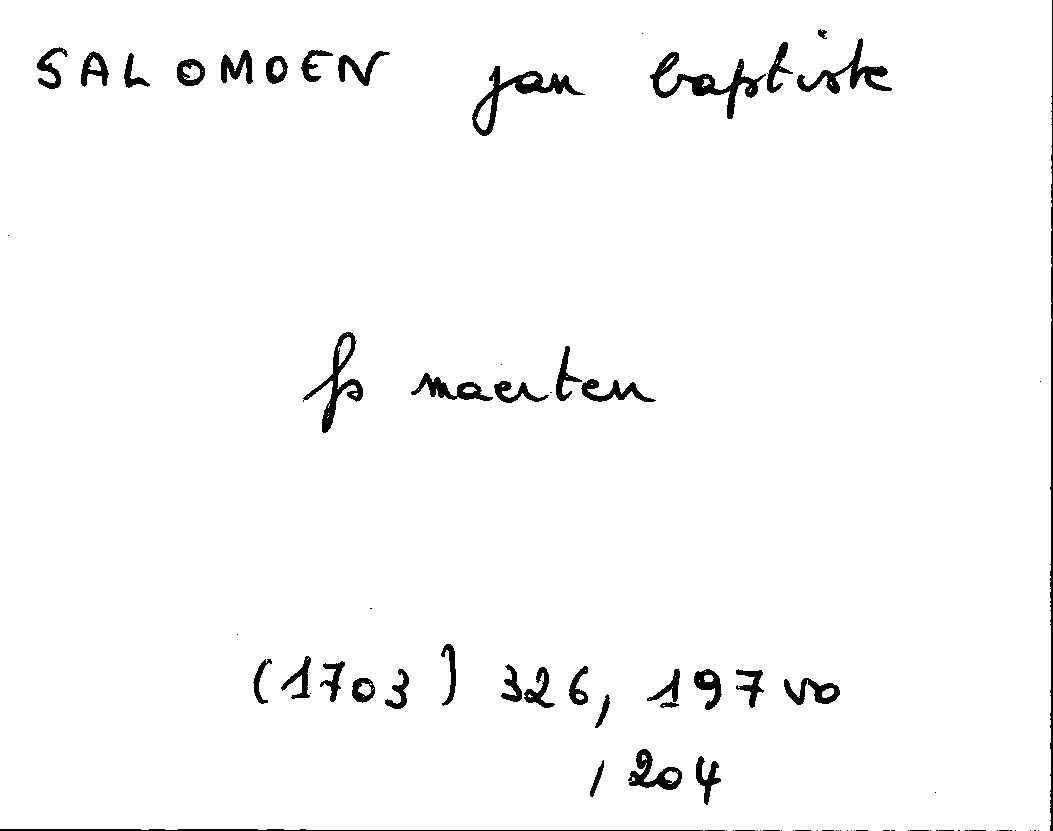 SALOMOEN jan baptiste
fs maerten
(1703) 326, 197 vo
, 204